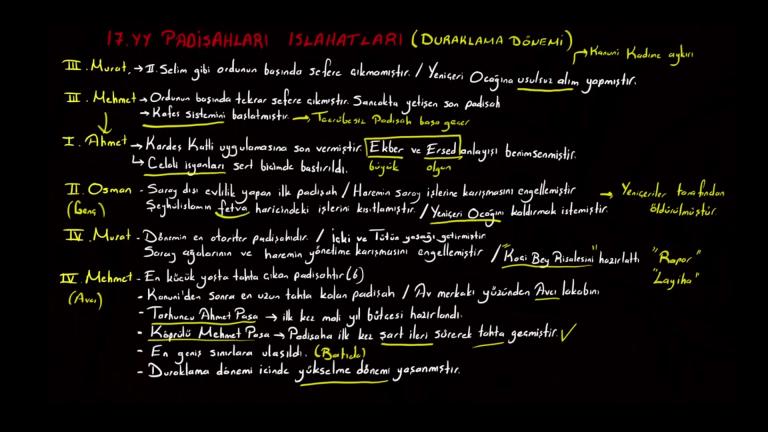 17.YY PADİŞAHLARI ISLAHATLARI (DURAKLAMA DÖNEMİ)
→ Kanuni Kadime aykırı
III. Murat, → II. Selim gibi ordunun başında sefere çıkmamıştır. / Yeniçeri Ocağına usulsüz alım yapmıştır.
III. Mehmet → Ordunun başında tekrar sefere çıkmıştır. Sancakta yetişen son padişah
→ Kafes sistemini başlatmıştır. → Tecrübesiz Padişah başa geçer
I. Ahmet → Kardeş Katli uygulamasına son vermiştir. Ekber ve Erşed anlayışı benimsenmiştir.
büyük olgun
↳ Celali isyanları sert biçimde bastırıldı.
II. Osman - Saray dışı evlilik yapan ilk padişah / Haremin saray işlerine karışmasını engellemiştir
(Genç) Şeyhülislamın fetva haricindeki işlerini kısıtlamıştır. / Yeniçeri Ocağını kaldırmak istemiştir.
→ Yeniçeriler tarafından öldürülmüştür
IV. Murat - Dönemin en otoriter padişahıdır. / İçki ve Tütün yasağı getirmiştir.
Saray ağalarının ve haremin yönetime karışmasını engellemiştir / "Koçi Bey Risalesini" hazırlattı "Rapor"
"Layiha"
IV. Mehmet - En küçük yaşta tahta çıkan padişahtır (6)
(Avcı) - Kanuni'den sonra en uzun tahta kalan padişah / Av merkakı yüzünden Avcı lakabını
- Tarhuncu Ahmet Paşa → ilk kez mali yıl bütçesi hazırlandı.
- Köprülü Mehmet Paşa → Padişaha ilk kez şart ileri sürerek tahta geçmiştir. ✓
- En geniş sınırlara ulaşıldı. (Batıda)
- Duraklama dönemi içinde yükselme dönemi yaşanmıştır.